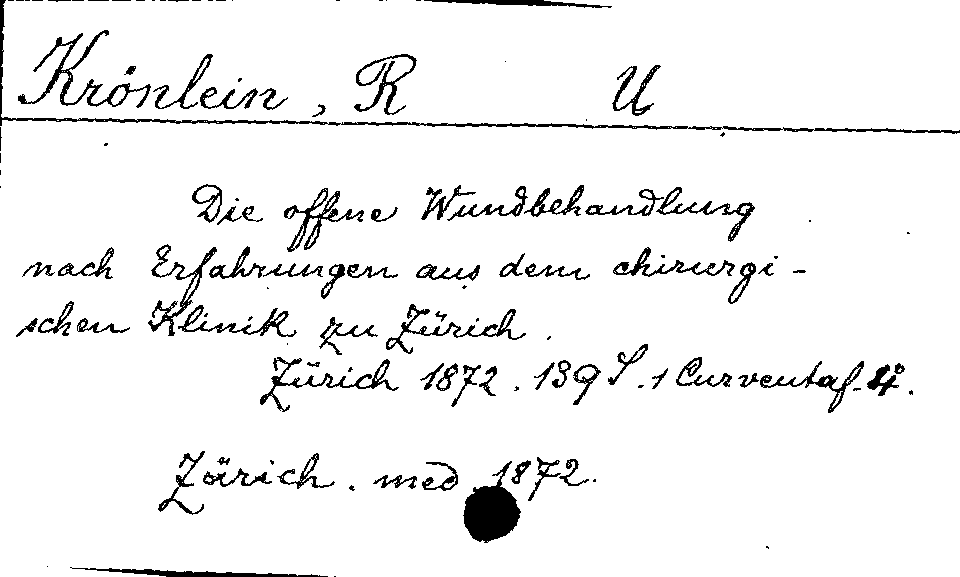 Krönlein, R U
Die offene Wundbehandlung
nach Erfahrungen aus dem chirurgi-
schen Klinik zu Zürich.
Zürich 1872. 139 S. 1 Curventaf. 4°.
Zürich. med. 1872.